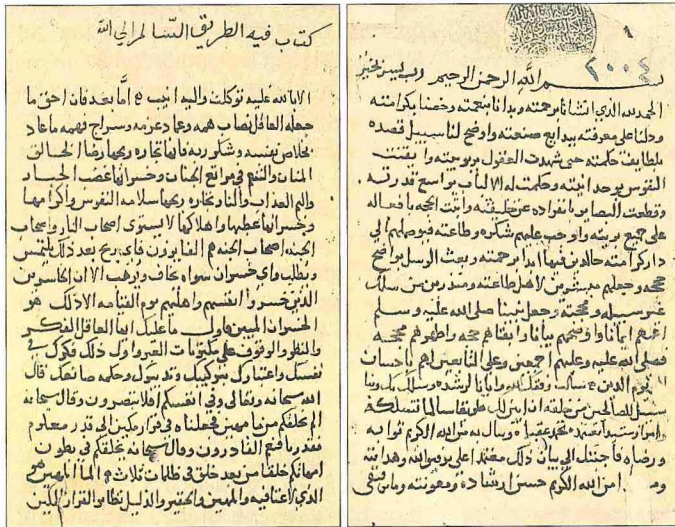 ٢٠٠٤
بسم الله الرحمن الرحيم رب يسر بخير
الحمد لله الذي انشانا برحمته وبدانا بنعمته وخصنا بكرامته
ودلنا على معرفته ببدايع صنعته واوضح لنا سبيل قصده
بلطايف حكمته حتى شهدت العقول بربوبيته وايقنت
النفوس بوحدانيته وحكمت له الالباب بواسع قدرته
وقطعت البصاير بانفراده عن خليقته واثبت الحجه بافعاله
على جميع بريته واوجب عليهم شكره وطاعته فيوصلهم الى
دار كرامته خالدين فيها ابدا برحمته وبعث الرسل بواضح
حججه وجعلهم مبشرين لاهل طاعته ومنذرين من سلك
غير سبيله ومحجته وجعل نبينا صلى الله عليه وسلم
ايمانا واوضحهم بيانا وابقاهم حجه واظهرهم محجه
فصلى الله عليه وعليهم اجمعين وعلى التابعين لهم باحسان
الى يوم الدين وفقك الله وايانا لرشده وسلك بك وبنا
سبيل الصالحين من خلقه ان سالما تسلكه
الله الكريم ثوابه
ورضاه فاجبتك الى بيان ذلك معتمدا على توفيق الله وهدايته
من الله الكريم حسن ارشاده ومعونته وما توفيقي
كتاب فيه الطريق السالم الى الله
الا بالله عليه توكلت واليه انيب اما بعد فان احق ما
جعله العاقل نصاب همه وعماد عزمه وسراج فهمه ما عاد
بخلاص نفسه وشكر ربه فانها تجاره ربحها رضا الخالق
المنان والتنعم في مراتع الجنان وخسرانها غضب الجبار
واليم العذاب والنار تجاره ربحها سلامه النفوس واكرامها
وخسرانها عطبها واهلاكها لا يستوى اصحاب النار واصحاب
الجنه اصحاب الجنه هم الفايزون فاي ربح بعد ذلك يلتمس
ويطلب واي خسران سواه يخاف ويرهب الا ان الخاسرين
الذين خسروا انفسهم واهليهم يوم القيامه الا ذلك هو
الخسران المبين فاول ما عليك ايها العاقل الفكر
والنظر والوقوف على واول ذلك فكرك في
نفسك واعتبارك بتركيبك وتدبيرك وحكمه صانعك قال
الله سبحانه وتعالى وفي انفسكم افلا تبصرون وقال سبحانه
الم نخلقكم من ما مهين فجعلناه في قرار مكين الى قدر معلوم
فقدرنا فنعم القادرون وقال سبحانه يخلقكم في بطون
امهاتكم خلقا من بعد خلق في ظلمات ثلاث الما المهين هو
الذي لا عنا فيه والمهين والحقير والذليل نظاير والقرار المكين